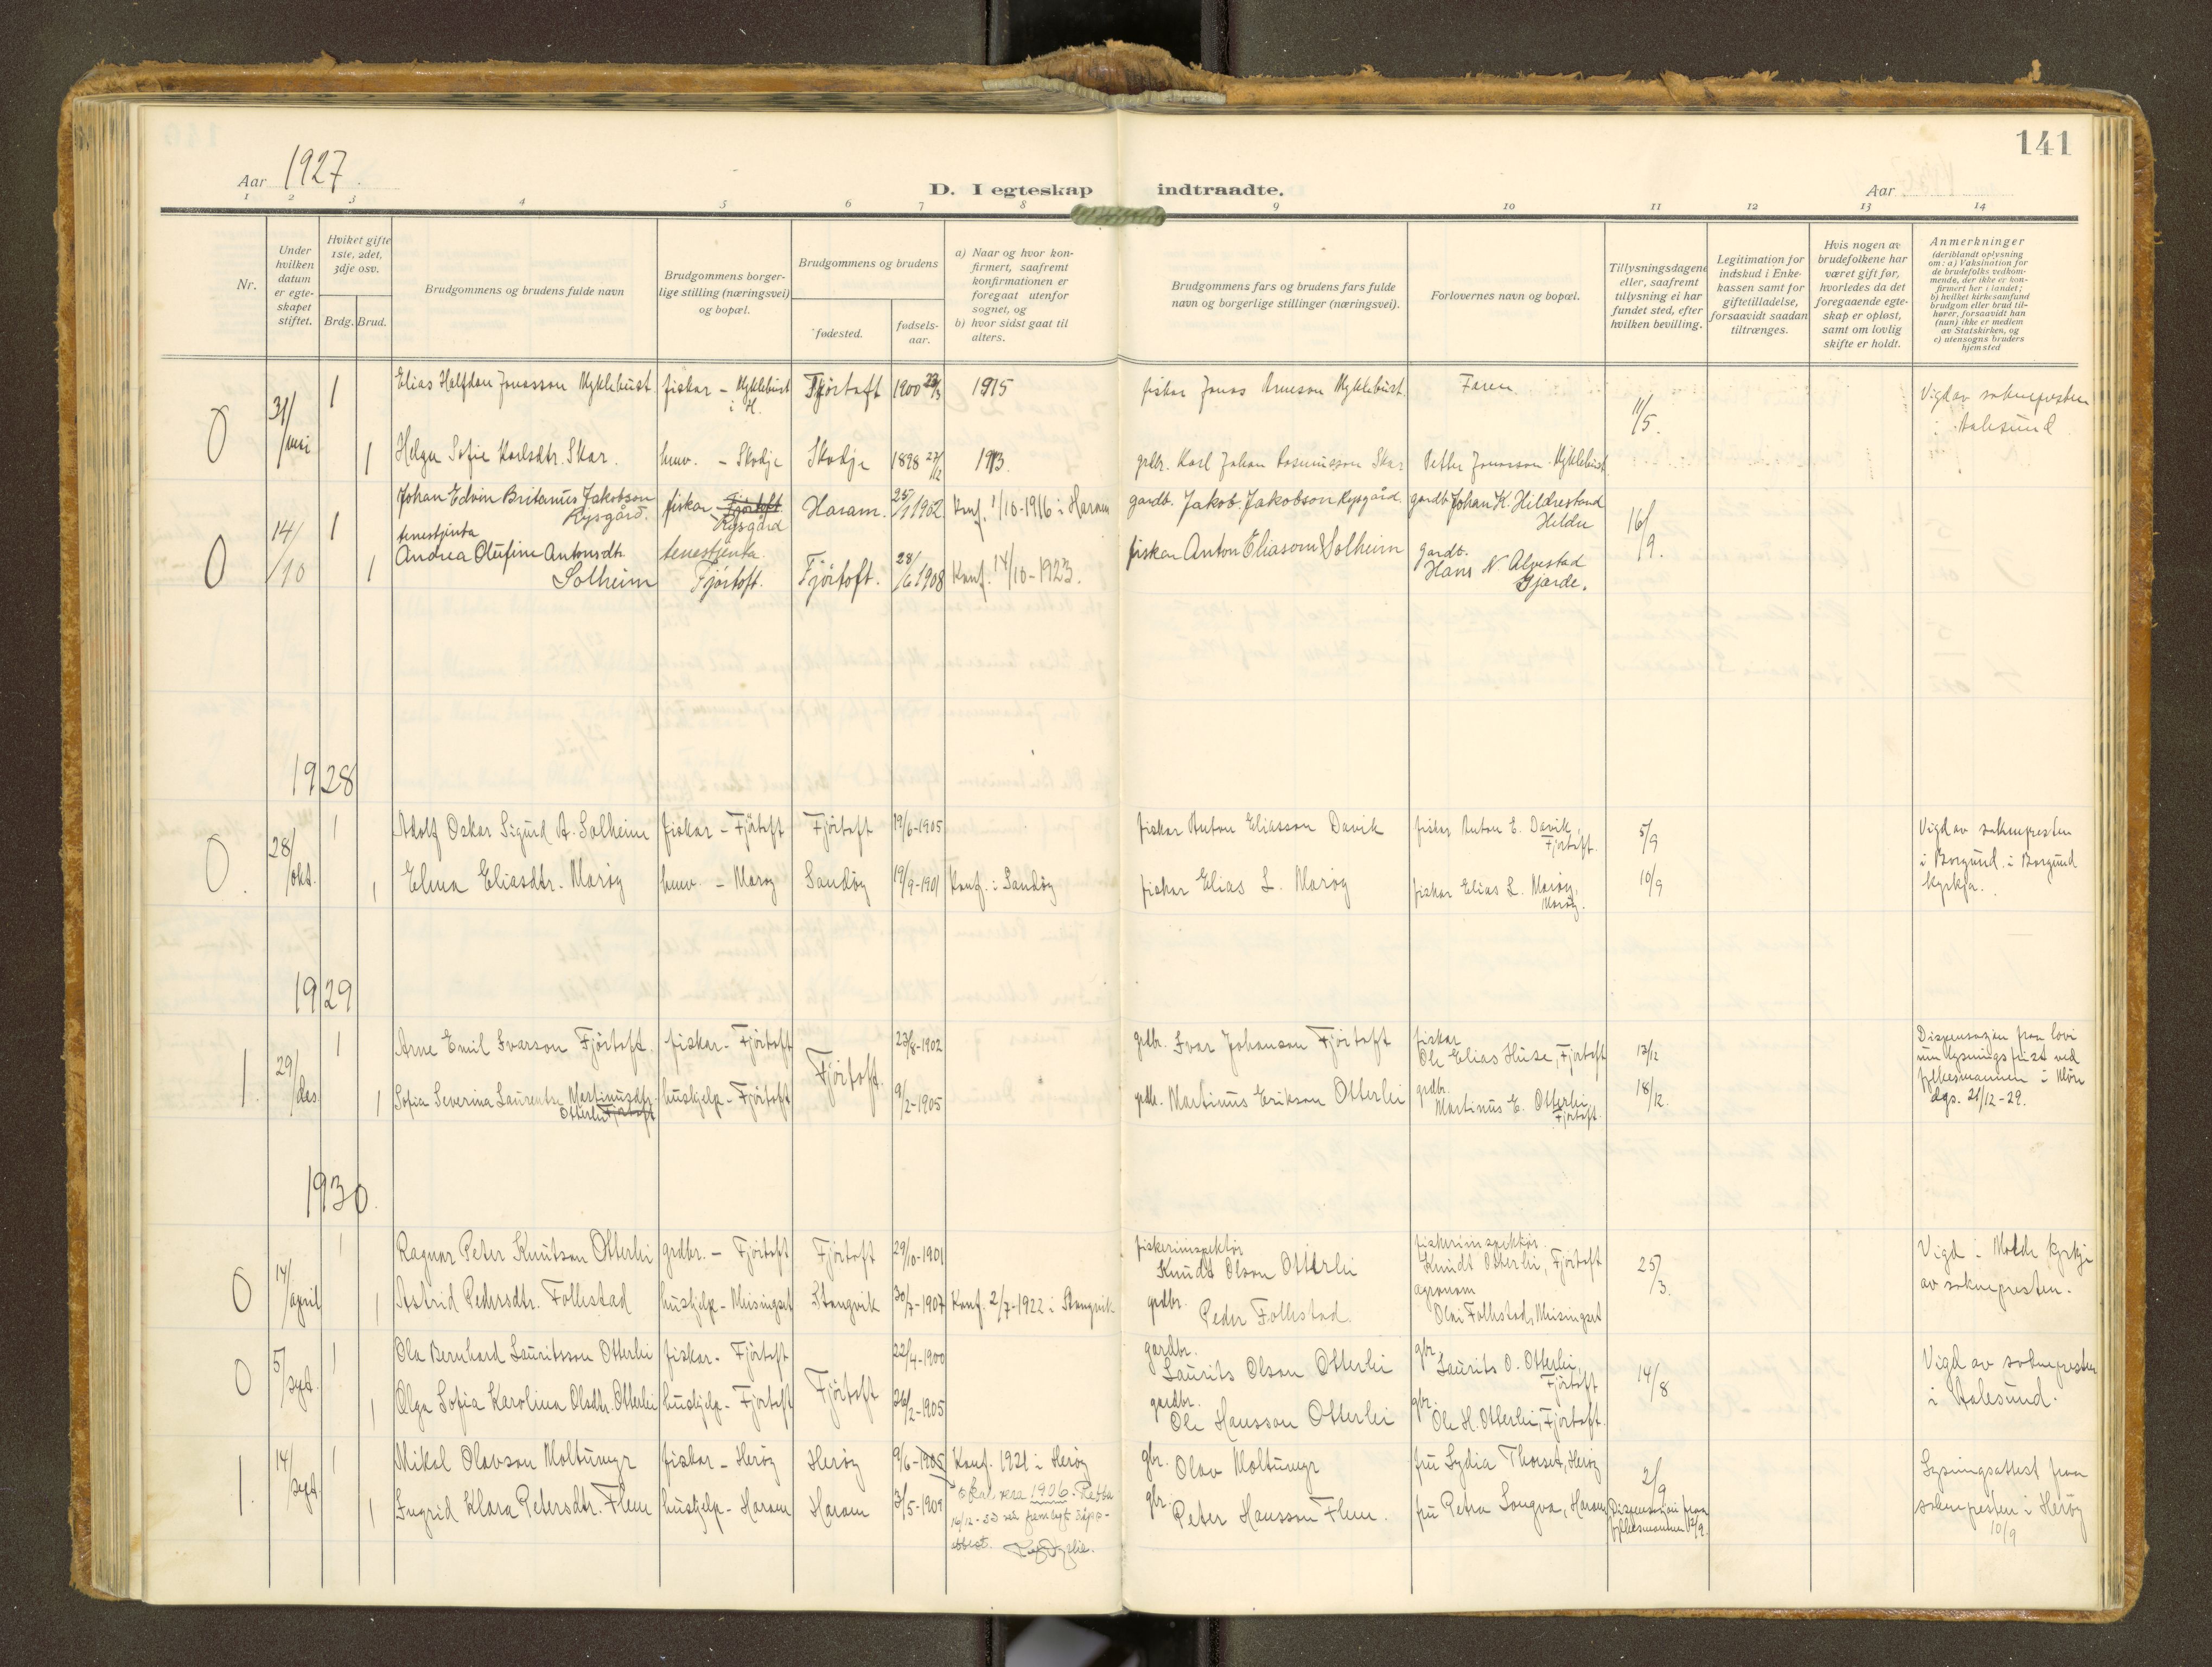 141
Aar 1927.
D. I egteskap indtraadte.
Aar
1 2 3 4 5 6 7 8 9 10 11 12 13 14
Nr.
Under hvilken datum er egte-skapet stiftet.
Hviket gifte 1ste, 2det, 3dje osv.
Brdg. Brud.
Brudgommens og brudens fulde navn
Brudgommens borger-lige stilling (næringsvei) og bopæl.
Brudgommens og brudens
fødested.
fødsels-aar.
a) Naar og hvor kon-firmert, saafremt konfirmationen er foregaat utenfor sognet, og
b) hvor sidst gaat til alters.
Brudgommens fars og brudens fars fulde navn og borgerlige stillinger (næringsvei).
Forlovernes navn og bopæl.
Tillysningsdagene eller, saafremt tillysning ei har fundet sted, efter hvilken bevilling.
Legitimation for indskud i Enke-kassen samt for giftetilladelse, forsaavidt saadan tiltrænges.
Hvis nogen av brudefolkene har været gift før, hvorledes da det foregaaende egte-skap er opløst, samt om lovlig skifte er holdt.
Anmerkninger
(deriblandt oplysning om: a) Vaksination for de brudefolks vedkom-mende, der ikke er kon-firmert her i landet;
b) hvilket kirkesamfund brudgom eller brud til-hører, forsaavidt han (hun) ikke er medlem av Statskirken, og
c) utensogns bruders hjemsted
0 31/mai 1 Elias Halfdan Jonasson Myklebust fiskar - Myklebust i H. Fjørtoft 1900 23/3 1915 fiskar Jonas Arneson Myklebust Faren 11/5. Vigd av soknepresten i Aalesund
1 Helga Sofie Karlsdtr. Skar. heimv. - Skodje Skodje 1898 27/12 1913. grdbr. Karl Johan Rasmusson Skar Petter Jonasson Myklebust
0 14/10 1 Johan Edvin Britanus Jakobson Rysgård. fiskar Fjørtoft Rysgård Haram. 25/1 1902. Konf. 1/10-1916 i Haram gardb. Jakob Jakobson Rysgård. gardb. Johan K. Hildrestrand Hildre 16/9.
1 tenestjenta Andrea Olufine Antonsdtr. Solheim tenestjenta. Fjørtoft. Fjørtoft. 28/6 1908 Konf. 14/10-1923. fiskar Anton Eliason Solheim gardb. Hans N. Alvestad Gjærde.
1928
0. 28/okt. 1 Adolf Oskar Sigurd A. Solheim fiskar - Fjørtoft Fjørtoft 19/6-1905 fiskar Anton Eliasson Davik fiskar Anton E. Davik, Fjørtoft. 5/9 Vigd av soknepresten i Borgund i Borgund kyrkja.
1 Elma Eliasdtr. Marøy heimv. - Marøy Sandøy 19/9-1901 Konf. i Sandøy fiskar Elias L. Marøy fiskar Elias L. Marøy, Marøy. 10/9
1929
1. 29/des. 1 Arne Emil Ivarson Fjørtoft. fiskar - Fjørtoft Fjørtoft. 23/8-1902 grdbr. Ivar Johanson Fjørtoft fiskar Ole Elias Huse, Fjørtoft 13/12 Dispensasjon fraa lovi um lysningsfrist ved fylkesmannen i Møre dgs. 21/12-29.
1 Sofia Severina Laurentse Martinusdtr. Otterlei Fjørtoft hushjelp - Fjørtoft 9/2-1905 grdbr. Martinus Erikson Otterlei grdbr. Martinus E. Otterlei, Fjørtoft. 18/12.
1930.
0 14/april 1 Ragnar Peter Knutson Otterlei grdbr. - Fjørtoft Fjørtoft 29/10-1901 fiskeriinspektør Knudt Olson Otterlei fiskeriinspektør Knudt Otterlei, Fjørtoft 25/3. Vigd i Molde kyrkje av soknepresten.
1 Astrid Pedersdtr. Follestad hushjelp - Meisingset Stangvik 30/7-1907 Konf. 2/7-1922 i Stangvik grdbr. Peder Follestad. agronom Olai Follestad, Meisingset
0 5/sept. 1 Ola Bernhard Lauritsson Otterlei fiskar - Fjørtoft Fjørtoft 22/4-1900 gardbr. Laurits Olson Otterlei gbr. Laurits O. Otterlei, Fjørtoft 14/8 Vigd av soknepresten i Aalesund.
1 Olga Sofia Karolina Olsdtr. Otterlei hushjelp - Fjørtoft 26/2-1905 gardbr. Ole Hansson Otterlei gbr. Ole H. Otterlei, Fjørtoft.
1. 14/sept. 1 Mikal Olavson Moltumyr fiskar - Herøy Herøy 9/6-1905 Konf. 1921 i Herøy gbr. Olav Moltumyr fru Lydia Thorset, Herøy 2/9 Lysningsattest fraa soknepresten i Herøy 10/9
skal vera 1906. Retta 16/12-53
attest.
1 Ingrid Klara Petersdtr. Flem hushjelp - Haram Haram 3/5-1909 gbr. Peter Hansson Flem. fru Petra Longva, Haram Dispensasjon fraa fylkesmannen 12/9.